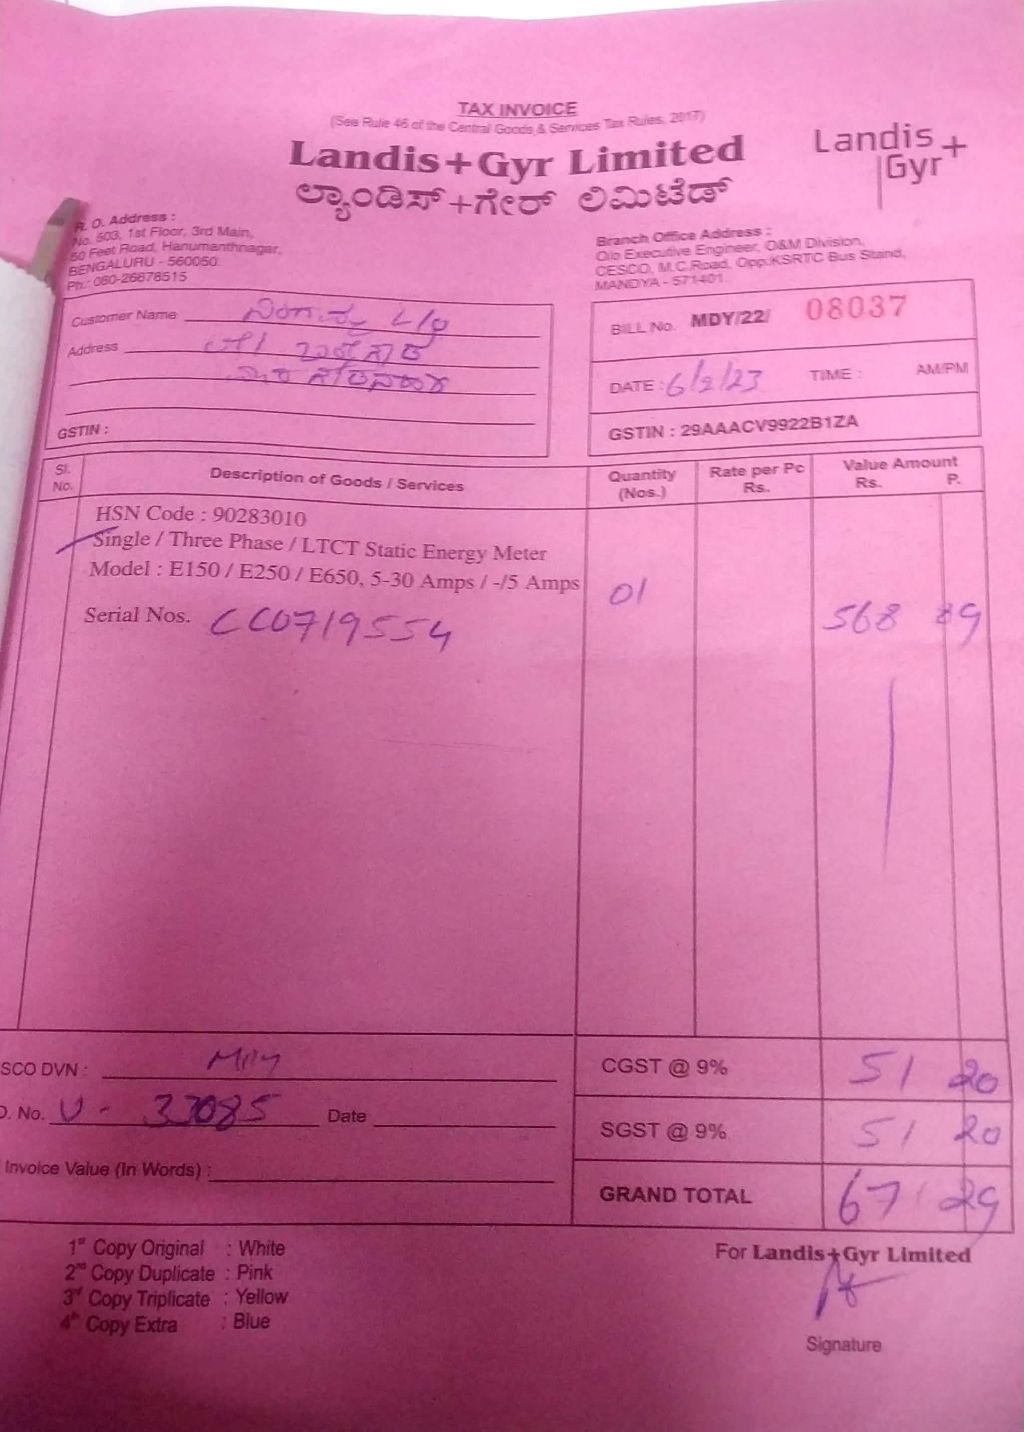 TAX INVOICE
(See Rule 46 of the Central Goods & Services Tax Rules, 2017)
Landis+Gyr Limited
ಲ್ಯಾಂಡಿಸ್+ಗೇರ್ ಲಿಮಿಟೆಡ್
Landis+
Gyr
R. O. Address :
No. 503, 1st Floor, 3rd Main,
60 Feet Road, Hanumanthnagar,
BENGALURU - 560050.
Ph.: 080-26678515
Branch Office Address :
O/o Executive Engineer, O&M Division,
CESCO, M.C.Road, Opp:KSRTC Bus Stand,
MANDYA - 571401.
Customer Name
Address
GSTIN :
BILL No. MDY/22/ 08037
DATE : 6/2/23 TIME : AM/PM
GSTIN : 29AAACV9922B1ZA
Sl. No. Description of Goods / Services Quantity (Nos.) Rate per Pc Rs. Value Amount Rs. P.
HSN Code : 90283010
Single / Three Phase / LTCT Static Energy Meter
Model : E150 / E250 / E650, 5-30 Amps / -/5 Amps 01
Serial Nos. CC0719554 568 89
SCO DVN :
O. No. U - 33085 Date
Invoice Value (In Words) :
CGST @ 9% 51 20
SGST @ 9% 51 20
GRAND TOTAL 671 29
1st Copy Original : White
2nd Copy Duplicate : Pink
3rd Copy Triplicate : Yellow
4th Copy Extra : Blue
For Landis+Gyr Limited
Signature